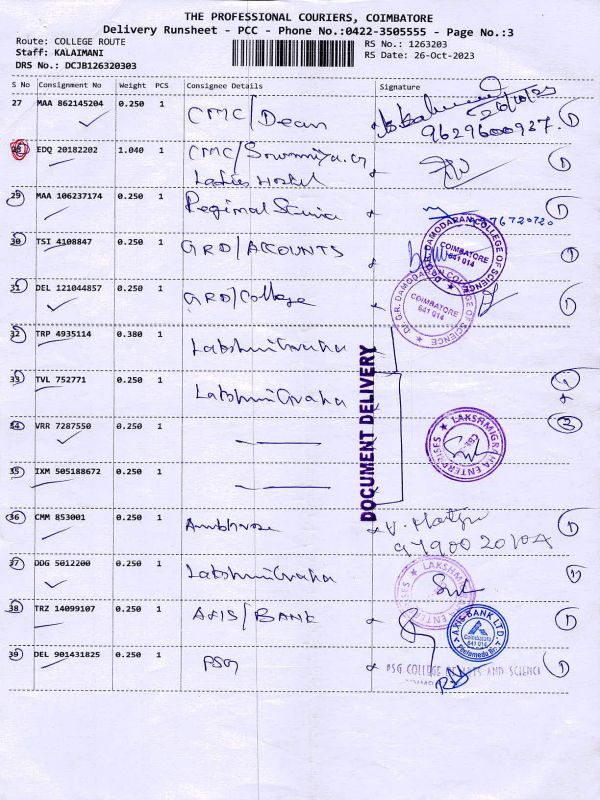 THE PROFESSIONAL COURIERS, COIMBATORE
Delivery Runsheet - PCC - Phone No.:0422-3505555 - Page No.:3
Route: COLLEGE ROUTE
Staff: KALAIMANI
DRS No.: DCJB126320303
RS No.: 1263203
RS Date: 26-Oct-2023
S No Consignment No Weight PCS Consignee Details Signature
27 MAA 862145204 0.250 1 CMC/Dean 26/10/23 1
9629600927.
28 EDQ 20182202 1.040 1 CMC/ 1
Ladies Hostel
29 MAA 106237174 0.250 1 Regional Science 1
30 TSI 4108847 0.250 1 GRD/ACCOUNTS 1
Dr.G.R. DAMODARAN COLLEGE OF SCIENCE
COIMBATORE
641 014
31 DEL 121044857 0.250 1 GRD/College 1
Dr.G.R. DAMODARAN COLLEGE OF SCIENCE
COIMBATORE
641 014
32 TRP 4935114 0.380 1 LakshmiGraha
DOCUMENT DELIVERY
33 TVL 752771 0.250 1 LakshmiGraha
34 VRR 7287550 0.250 1 2
LAKSHMIGRAHA ENTERPRISES
35 IXM 505188672 0.250 1
36 CMM 853001 0.250 1 1
37 DDG 5012200 0.250 1 LakshmiGraha
LAKSHMIGRAHA ENTERPRISES
38 TRZ 14099107 0.250 1 AXIS/BANK 1
AXIS BANK LTD.
Coimbatore
641 014
Peelamedu Br.
39 DEL 901431825 0.250 1 PSG 1
PSG COLLEGE OF ARTS AND SCIENCE